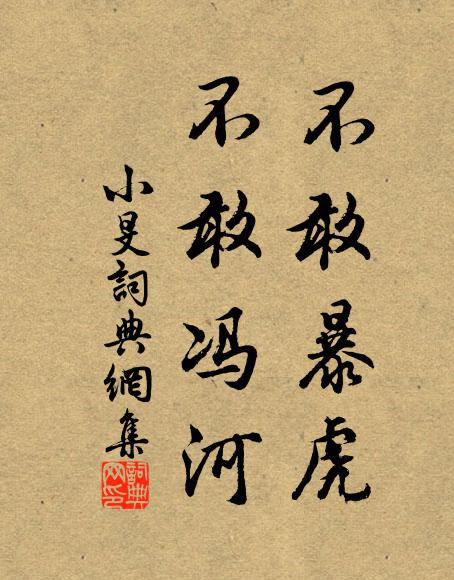 不敢暴虎
不敢冯河
小旻詞典網集
詞典网印